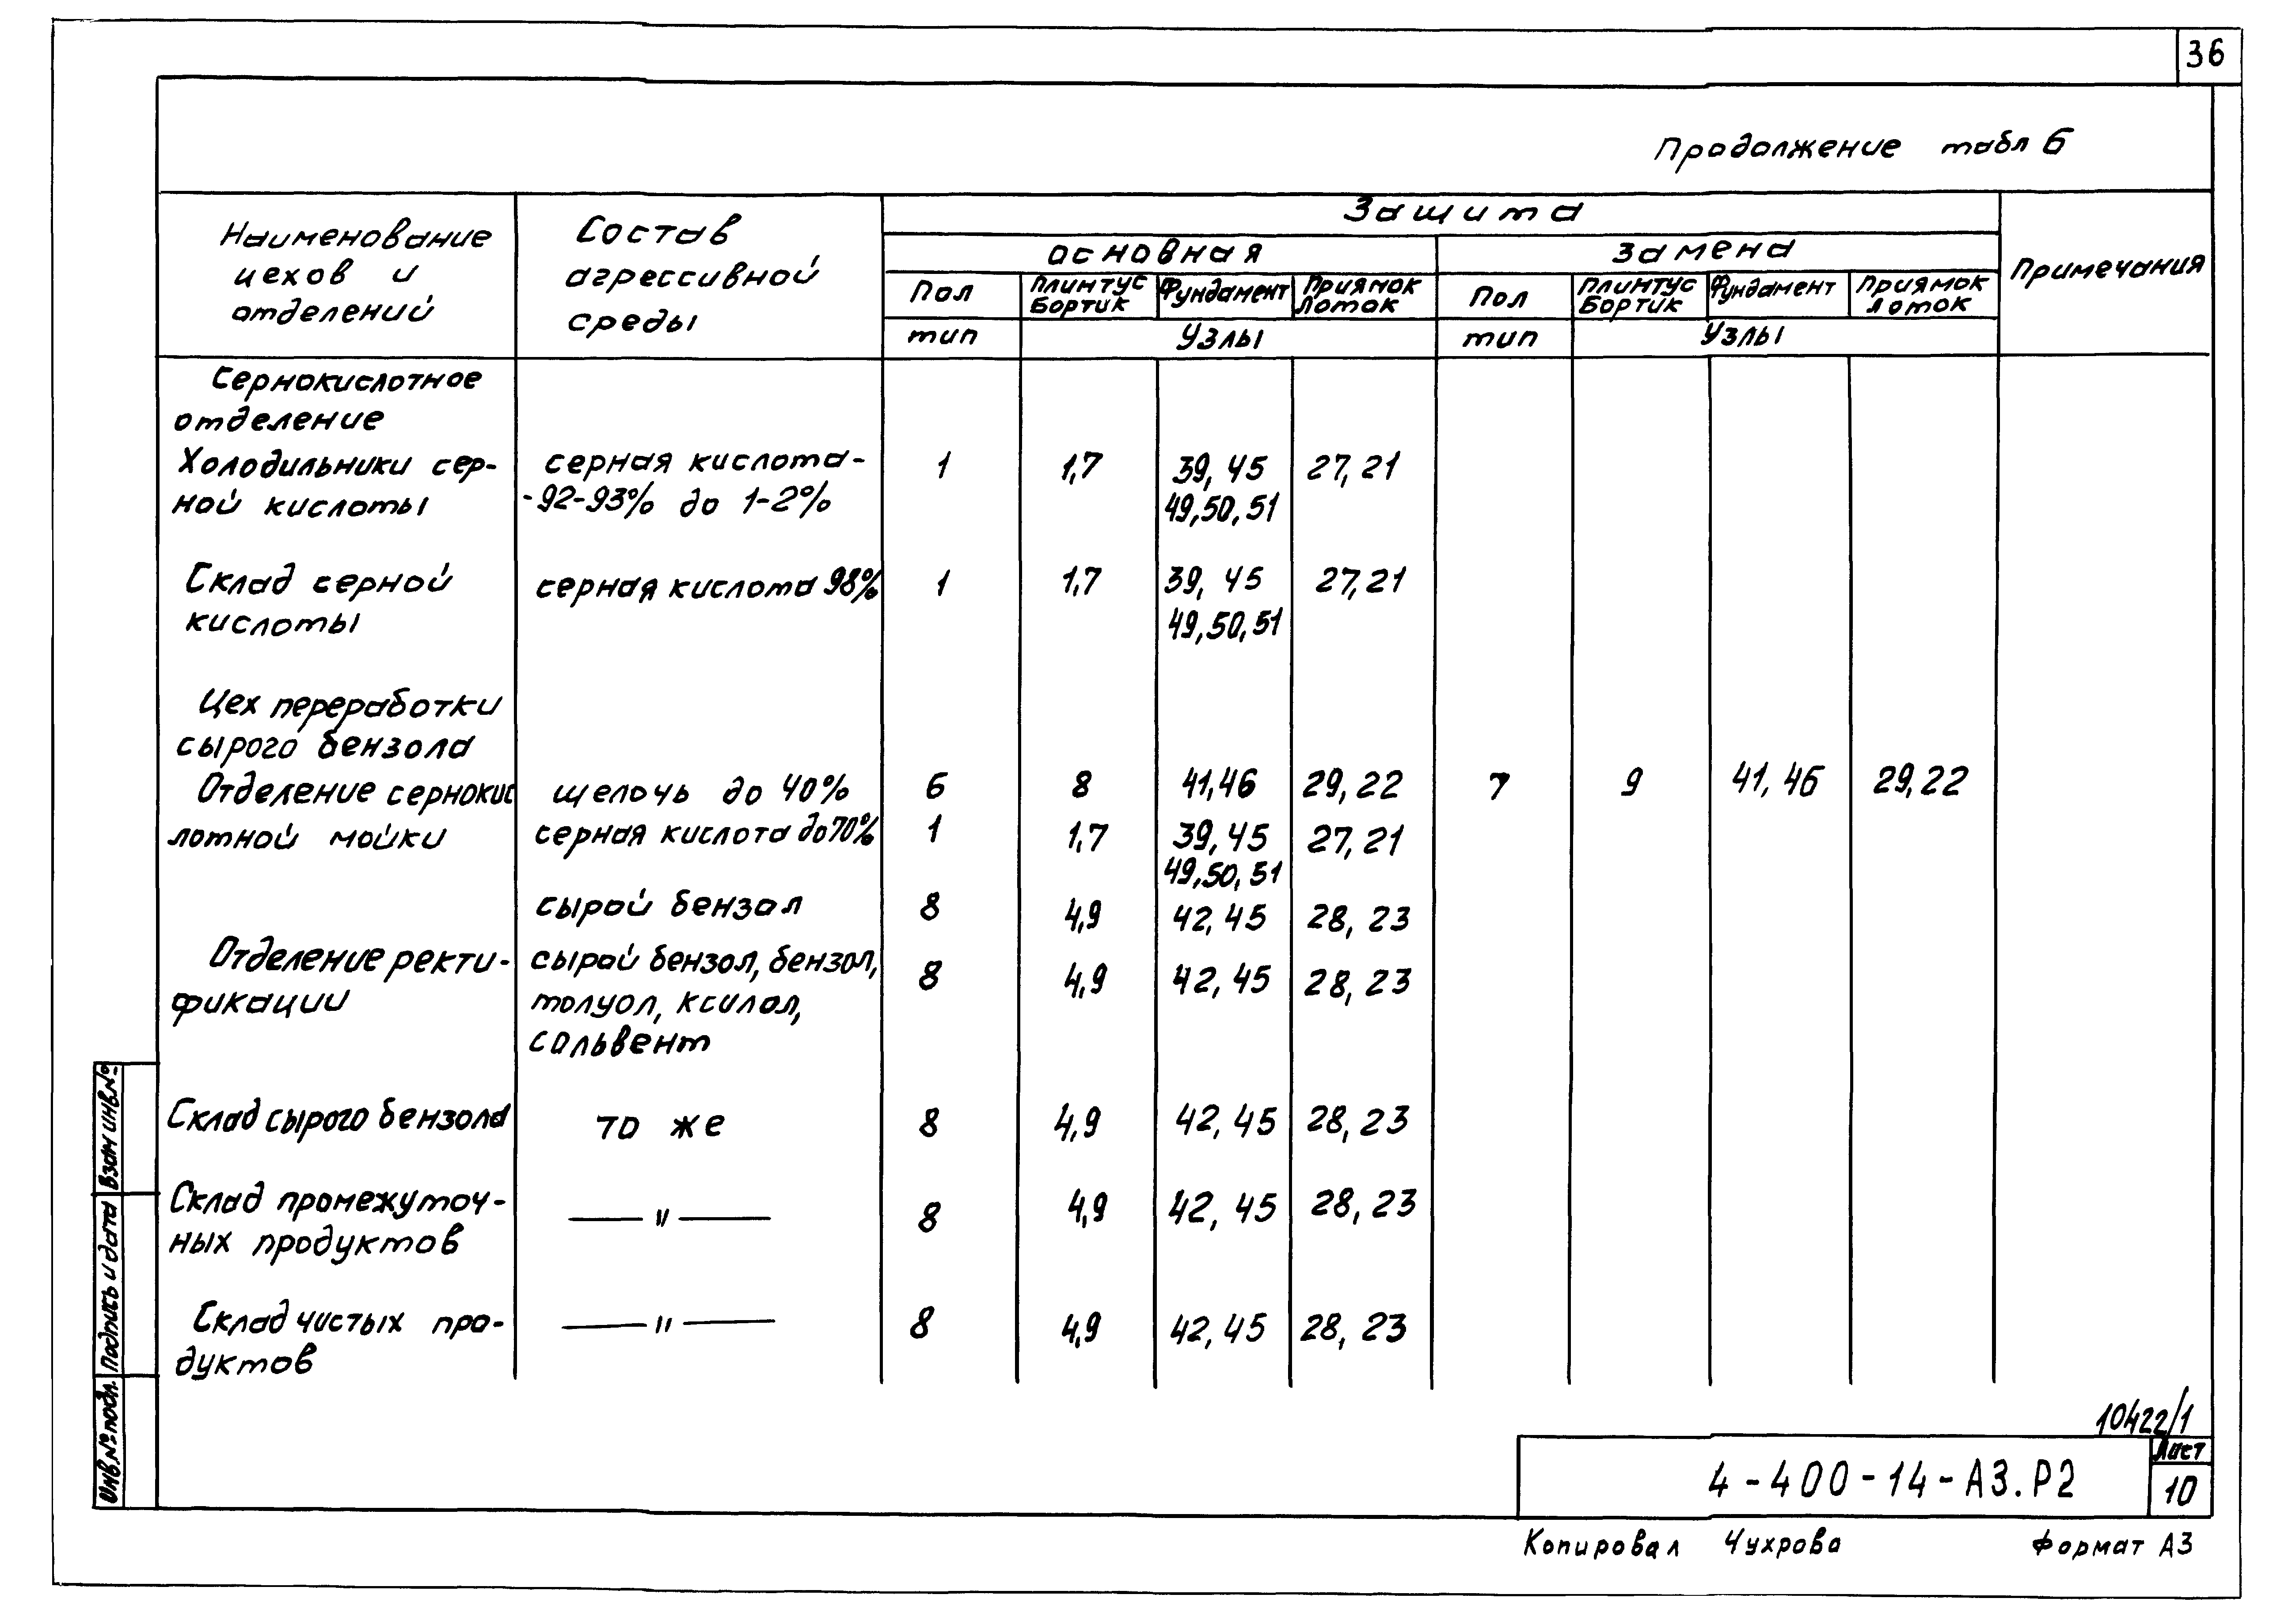 36
Продолжение табл 6
Наименование цехов и отделений
Состав агрессивной среды
Защита
Примечания
основная
замена
Пол
Плинтус Бортик
Фундамент
Приямок Лоток
Пол
Плинтус Бортик
Фундамент
Приямок Лоток
тип
Узлы
тип
Узлы
Сернокислотное
отделение
Холодильники сер- серная кислота- 1 1,7 39, 45 27, 21
ной кислоты -92-93% до 1-2% 49,50,51
Склад серной серная кислота 98% 1 1,7 39, 45 27,21
кислоты 49,50,51
Цех переработки
сырого бензола
Отделение сернокис щелочь до 40% 6 8 41,46 29, 22 7 9 41, 46 29,22
лотной мойки серная кислота до 70% 1 1,7 39, 45 27, 21
49,50,51
сырой бензол 8 4,9 42, 45 28, 23
Отделение ректи- сырой бензол, бензол, 8 4,9 42, 45 28, 23
фикации толуол, ксилол,
сольвент
Склад сырого бензола то же 8 4,9 42, 45 28, 23
Склад промежуточ- — " — 8 4,9 42, 45 28, 23
ных продуктов
Склад чистых про- — " — 8 4,9 42, 45 28, 23
дуктов
Взам инв.№
Подпись и дата
Инв.№ подл.
10422/1
4-400-14-А3.Р2
Лист
10
Копировал Чухрова Формат А3